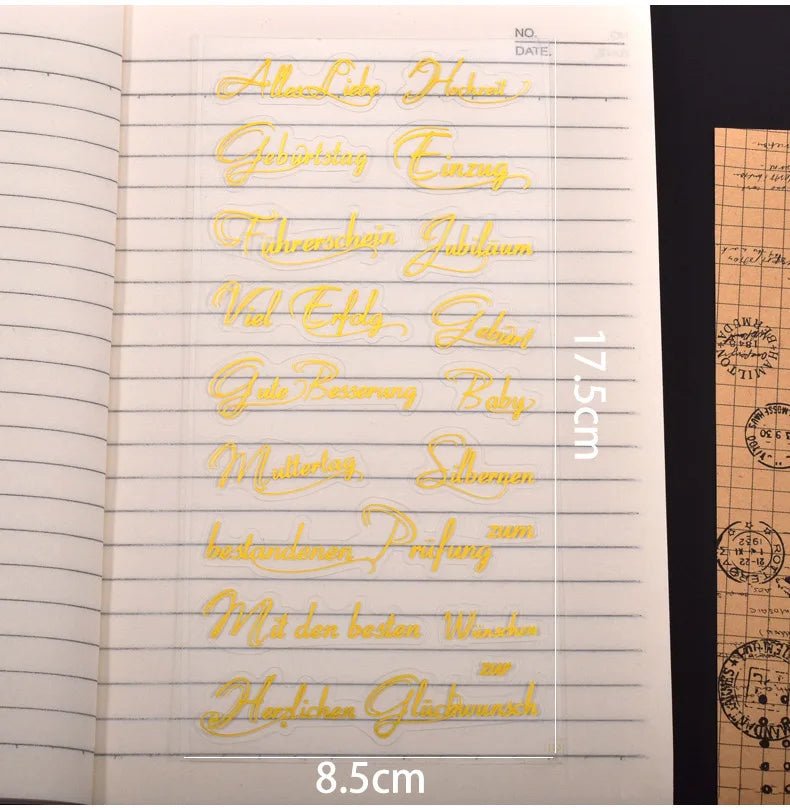 NO.
DATE.
Alles Liebe Hochzeit
Geburtstag Einzug
Führerschein Jubiläum
Viel Erfolg Geburt
Gute Besserung Baby
Muttertag Silbernen
bestandenen Prüfung zum
Mit den besten Wünschen
zur
Herzlichen Glückwunsch
17.5cm
8.5cm
HAMILTON
BERMUDA
21-22
1932